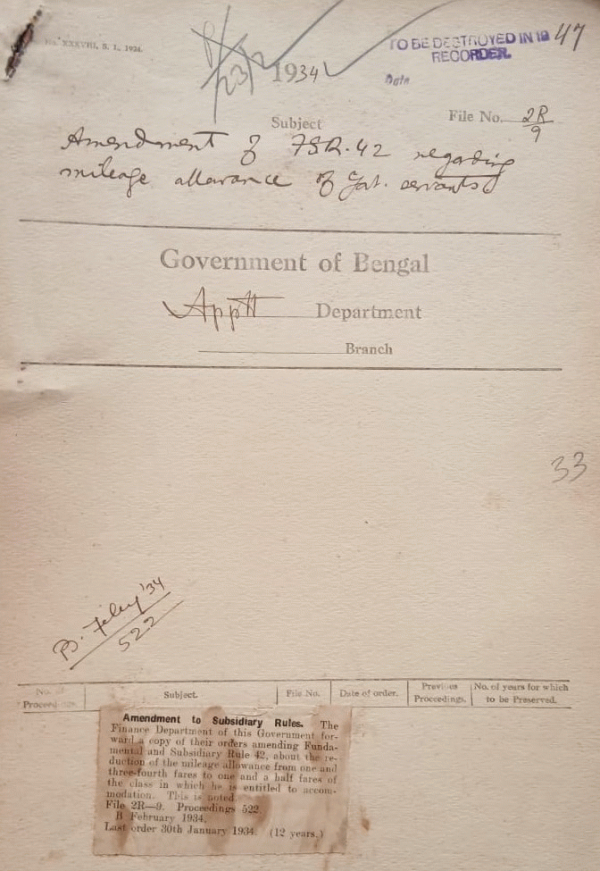 No. XXXVIII, S. 1, 1934.
TO BE DESTROYED IN 19 47
RECORDER.
Date
23
1934
Subject
File No. 2R/9
Amendment of FSR.42 regarding
mileage allowance of Govt. servants
Government of Bengal
Apptt Department
Branch
33
B. Feby '34
522
No. of Proceedings. Subject. File No. Date of order. Previous Proceedings. No. of years for which to be Preserved.
Amendment to Subsidiary Rules. The
Finance Department of this Government for-
ward a copy of their orders amending Funda-
mental and Subsidiary Rule 42, about the re-
duction of the mileage allowance from one and
three-fourth fares to one and a half fares of
the class in which he is entitled to accom-
modation. This is noted
File 2R—9. Proceedings 522.
B February 1934.
Last order 30th January 1934. (12 years.)